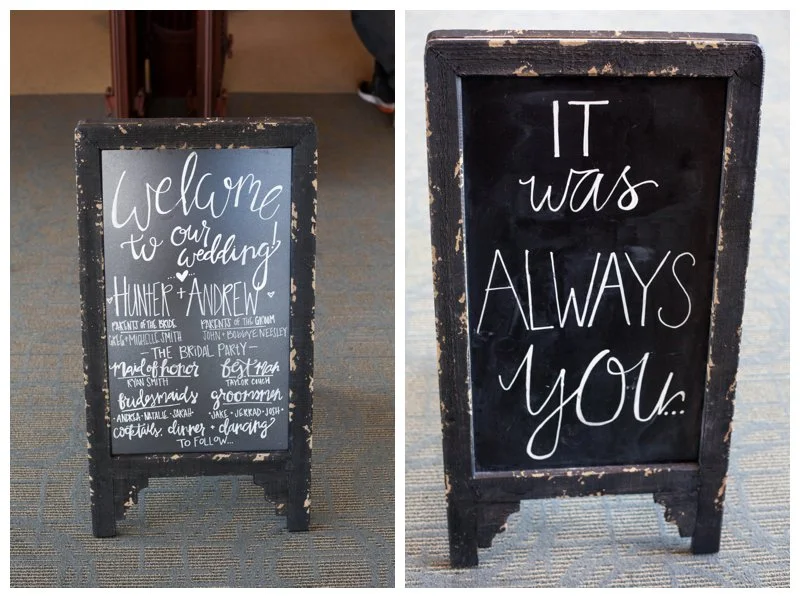 Welcome
to our
wedding!
HUNTER + ANDREW
PARENTS OF THE BRIDE
PARENTS OF THE GROOM
GREG + MICHELLE SMITH
JOHN + BOBBYE NEESLEY
— THE BRIDAL PARTY —
Maid of honor
best man
RYAN SMITH
TAYLOR COUCH
bridesmaids
groomsmen
· ANDREA · NATALIE · JAKAH ·
· JAKE · JERRAD · JOSH ·
cocktails, dinner + dancing
TO FOLLOW...
IT
was
ALWAYS
you...